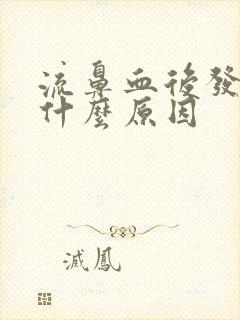 流鼻血後發
什麼原因
滅鳳